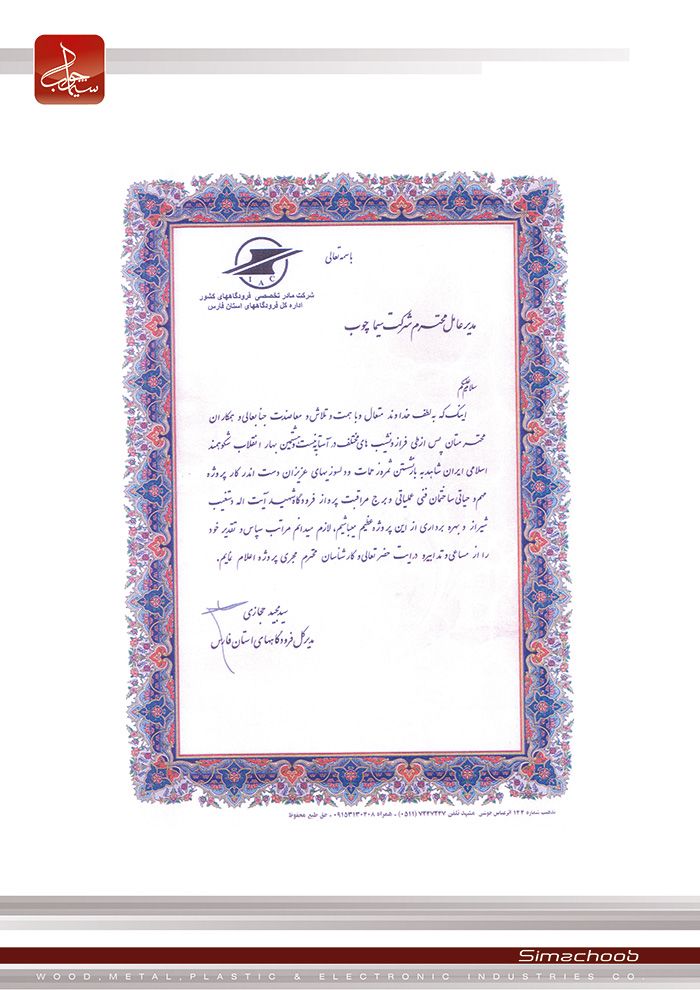 سیماچوب
باسمه تعالی
IAC
شرکت مادر تخصصی فرودگاههای کشور
اداره کل فرودگاههای استان فارس
مدیرعامل محترم شرکت سیما چوب
سلام علیکم
اینک که به لطف خداوند متعال و با همت و تلاش و معاضدت جنابعالی و همکاران
محترمتان پس از طی فراز و نشیب های مختلف در آستانه بیست و هشتمین بهار انقلاب شکوهمند
اسلامی ایران شاهد به بار نشستن ثمره زحمات و دلسوزیهای عزیزان دست اندر کار پروژه
مهم و حیاتی ساختمان فنی عملیاتی و برج مراقبت پرواز فرودگاه شهید آیت اله دستغیب
شیراز و بهره برداری از این پروژه عظیم میباشیم، لازم میدانم مراتب سپاس و تقدیر خود
را از مساعی و تدابیر و درایت حضرتعالی و کارشناسان محترم مجری پروژه اعلام نمایم.
سید مجید حجازی
مدیرکل فرودگاههای استان فارس
مذهب شماره ۱۲۲ الرضاعی خوشی مشهد تلفن ۷۲۴۷۲۴۷ (۰۵۱۱) - همراه ۰۹۱۵۳۱۳۰۲۰۸ - حق طبع محفوظ
Simachoob
WOOD, METAL, PLASTIC & ELECTRONIC INDUSTRIES CO.